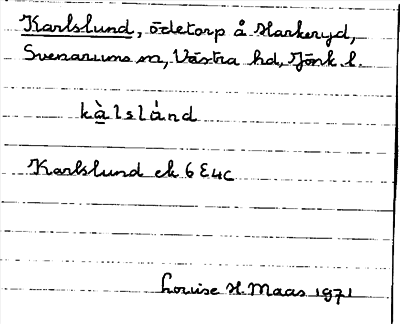 Karlslund, ödetorp å Harkeryd,
Svenarums sn, Västra hd, Jönk. l.
kàlslánd
Karlslund ek 6E4c
Louise H. Maas 1971